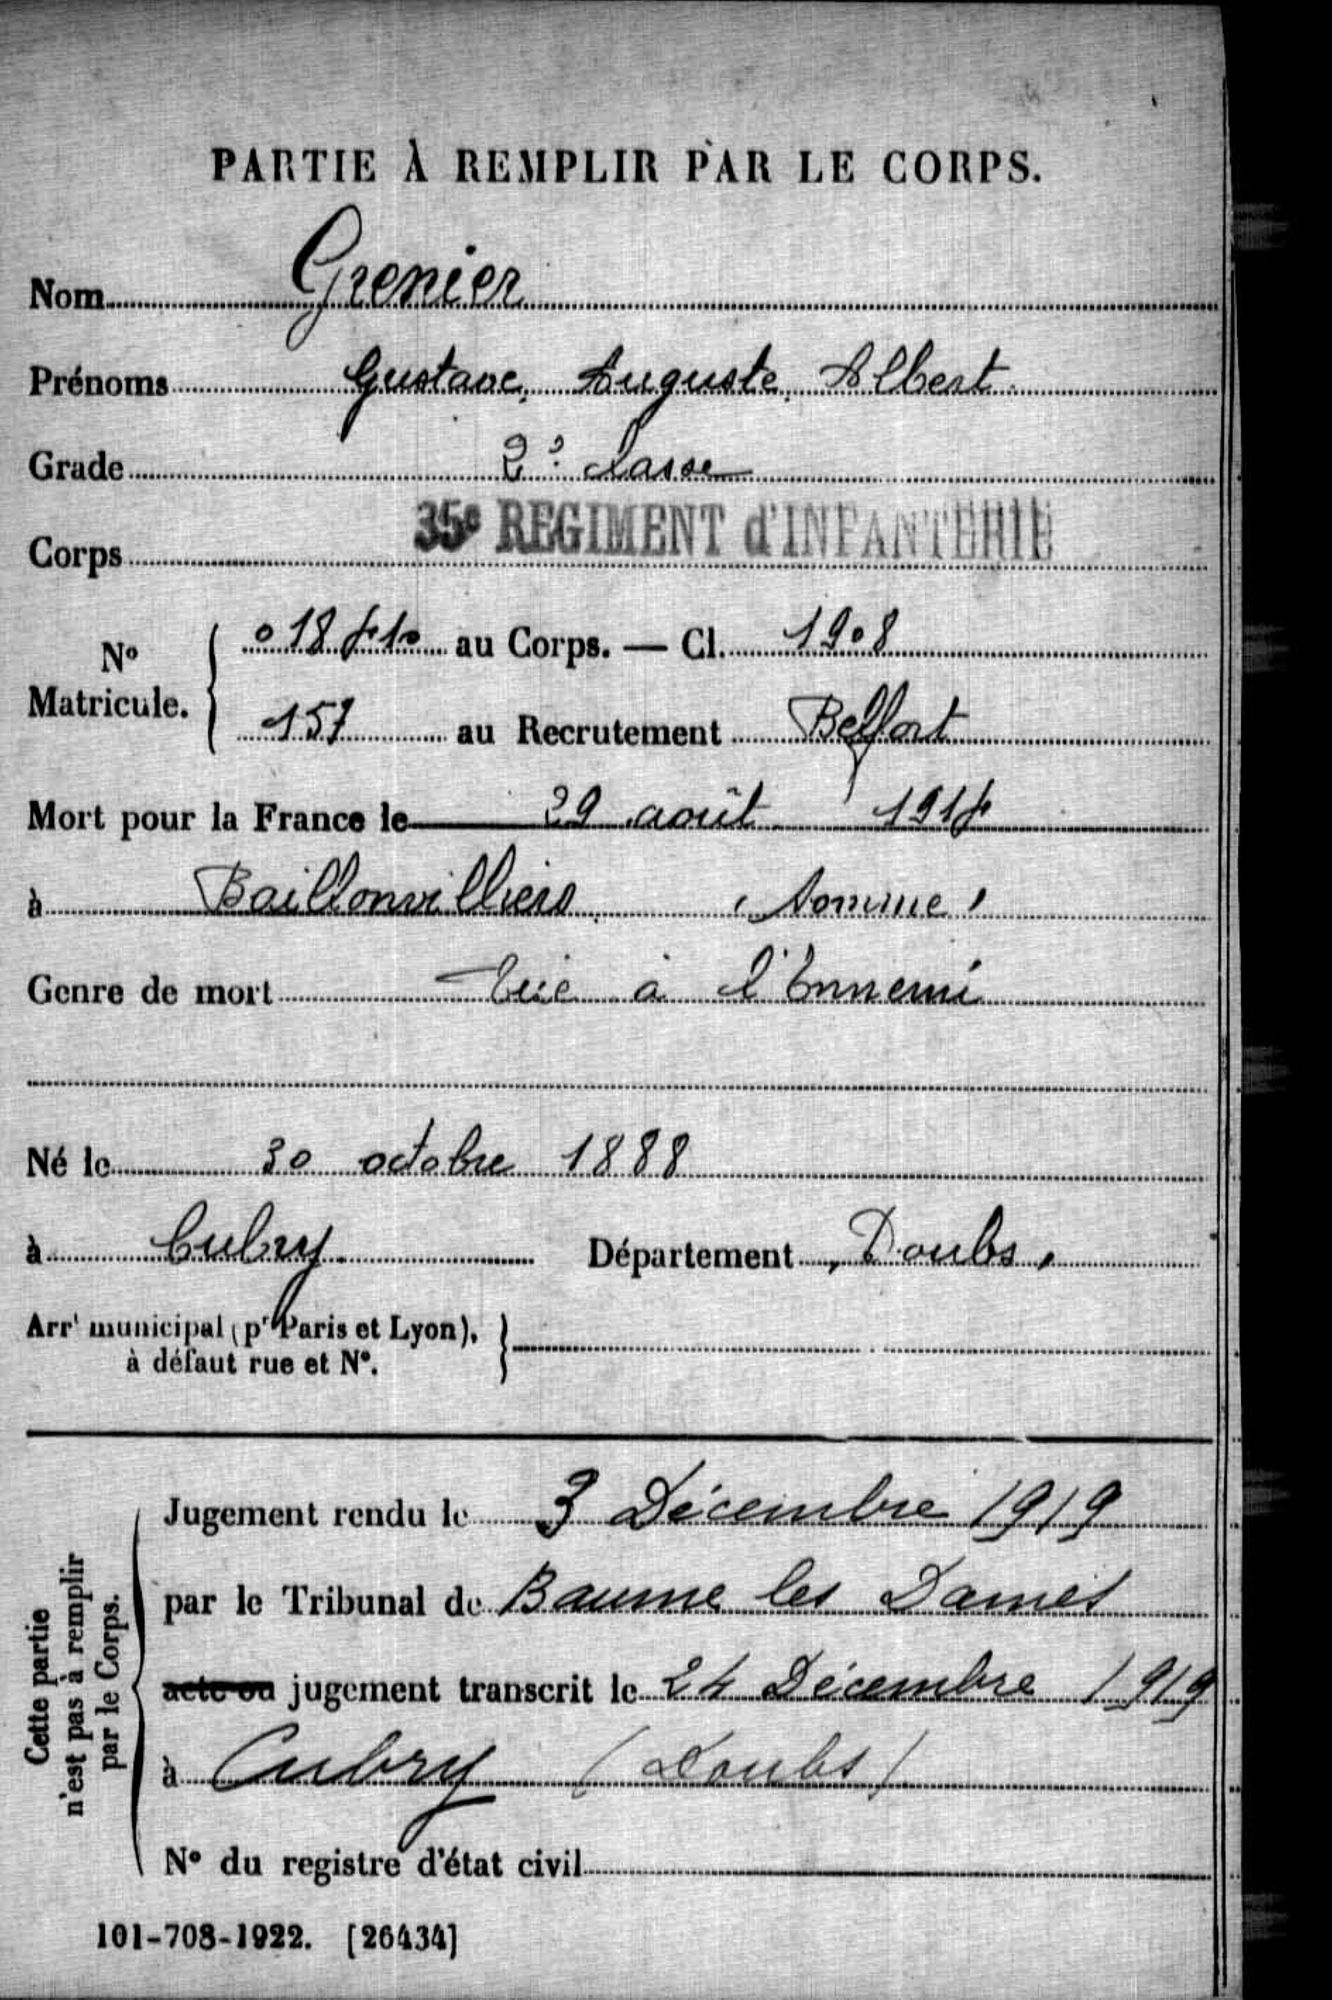 PARTIE À REMPLIR PAR LE CORPS.
Nom Grenier
Prénoms Gustave, Auguste, Albert
Grade 2e classe
Corps 35e REGIMENT d'INFANTERIE
No Matricule. { 018410 au Corps. — Cl. 1908
157 au Recrutement Belfort
Mort pour la France le 29 août 1914
à Baillonvilliers (Somme)
Genre de mort Tué à l'Ennemi
Né le 30 octobre 1888
à Cubry Département (Doubs)
Arrt municipal (pr Paris et Lyon),
à défaut rue et N°.
Cette partie
n'est pas à remplir
par le Corps.
Jugement rendu le 3 Décembre 1919
par le Tribunal de Baume les Dames
acte ou jugement transcrit le 24 Décembre 1919
à Cubry (Doubs)
N° du registre d'état civil
101-708-1922. [26434]